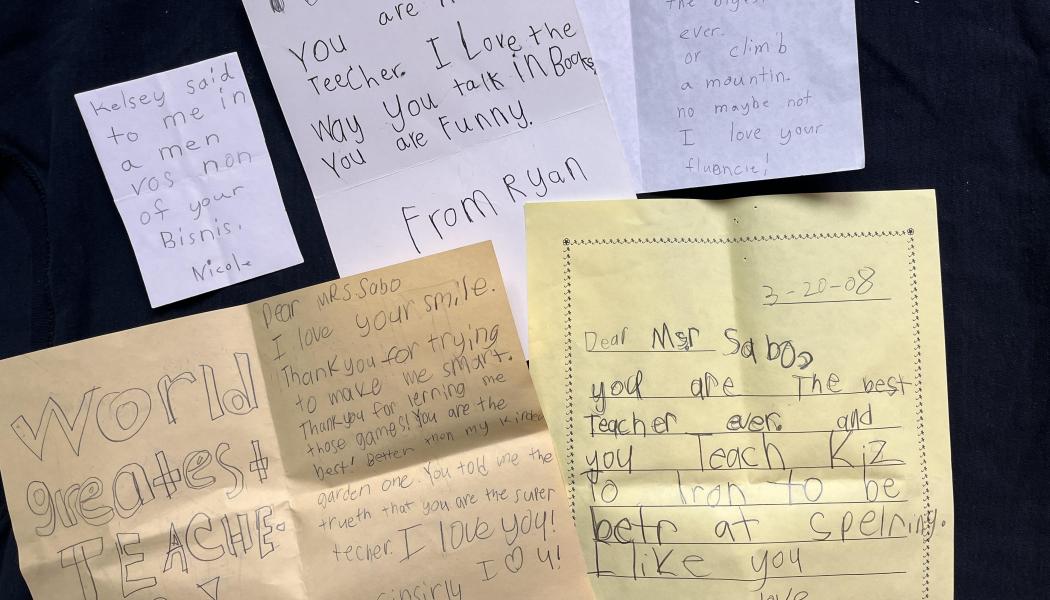 Kelsey said
to me in
a men
vos non
of your
Bisnis.
Nicole
You are
Teecher. I Love the
way you talk in Books
You are Funny.
From Ryan
ever.
or climb
a mountin.
no maybe not
I love your
fluencie!
World
greatest
TEACHE
Dear MRS. Sabo
I love your smile.
Thank you for trying
to make me smart.
Thank you for lerning me
those games! You are the
best! Better then my kinder
garden one. You told me the
trueth that you are the super
techer. I love you!
I ♡ u!
sinsirly
3-20-08
Dear Msr Sabo,
you are The best
Teacher ever. and
you Teach Kiz
To lron to be
betr at spelning.
I like you
love